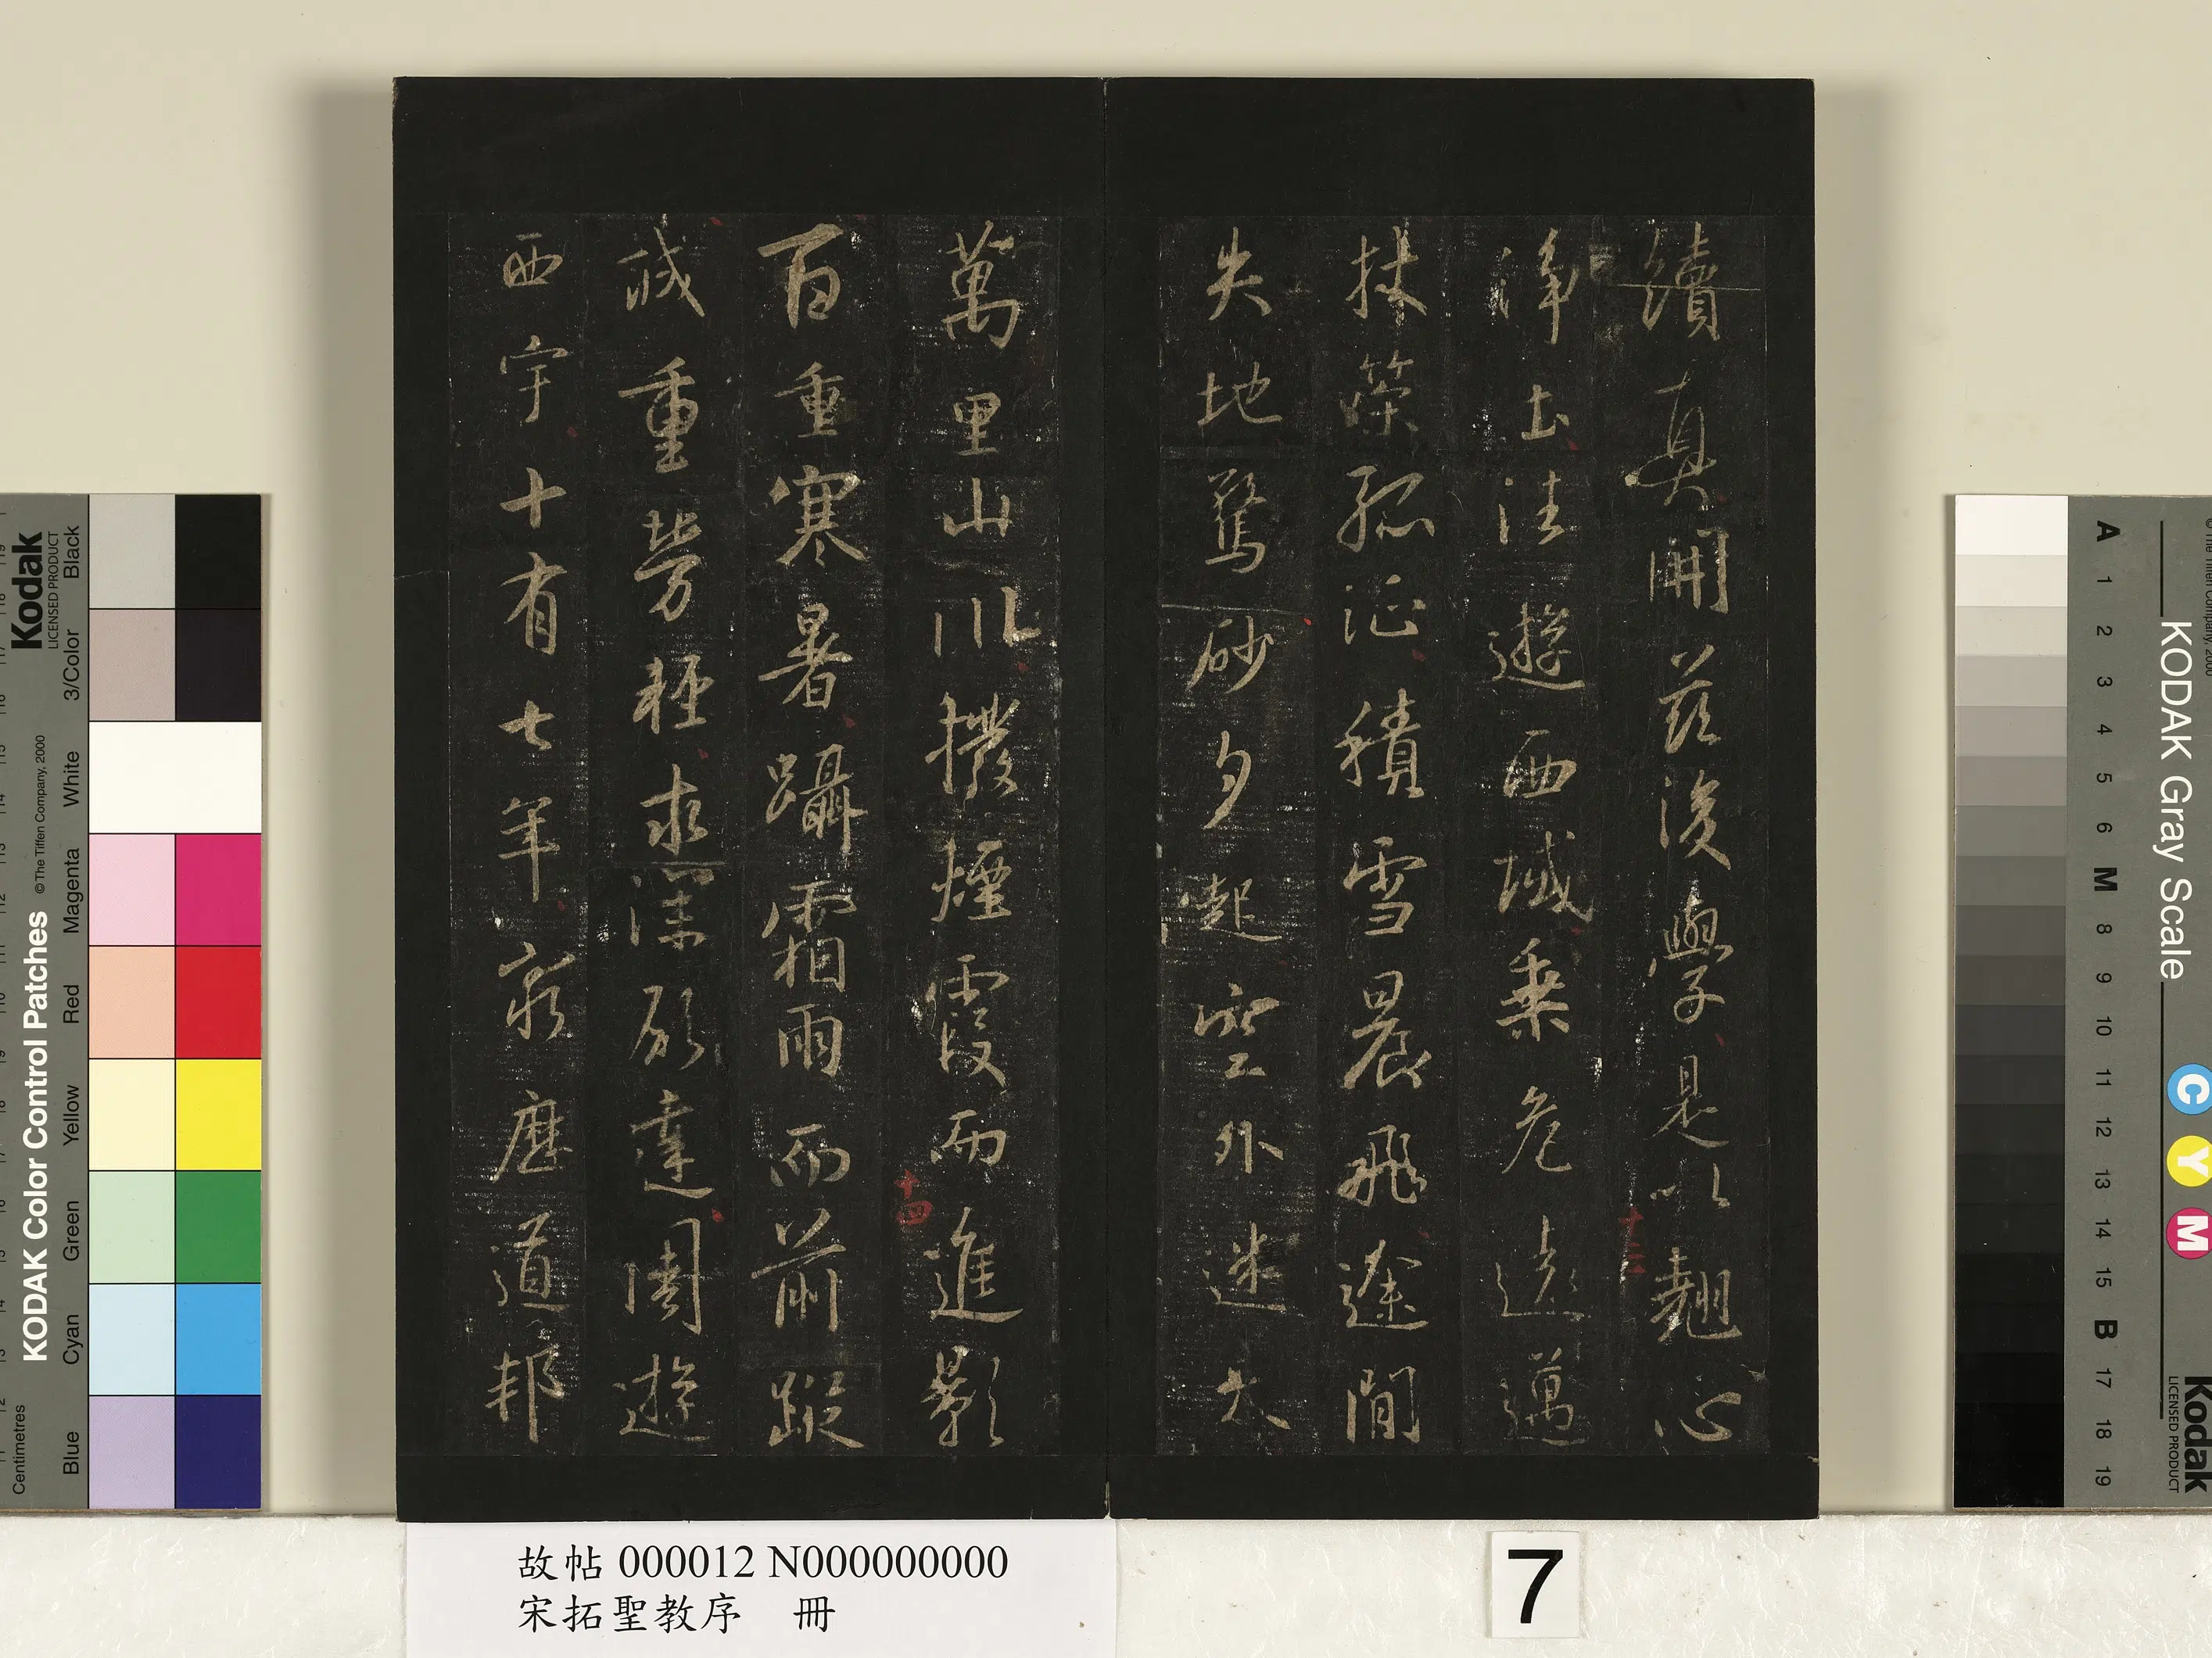 續真開茲後學是以翹心
淨土法遊西域乗危遠邁
杖策孤征積雪晨飛途間
失地驚砂夕起空外迷天
萬里山川撥煙霞而進影
百重寒暑躡霜雨而前蹤
誠重勞輕求深願達周遊
西宇十有七年窮歷道邦
十三
十四
故帖 000012 N000000000
宋拓聖教序 冊
7
Kodak
LICENSED PRODUCT
KODAK Color Control Patches
©The Tiffen Company, 2000
Centimetres
Black
3/Color
White
Magenta
Red
Yellow
Green
Cyan
Blue
KODAK Gray Scale
A 1 2 3 4 5 6 M 8 9 10 11 12 13 14 15 B 17 18 19
C Y M
Kodak
LICENSED PRODUCT